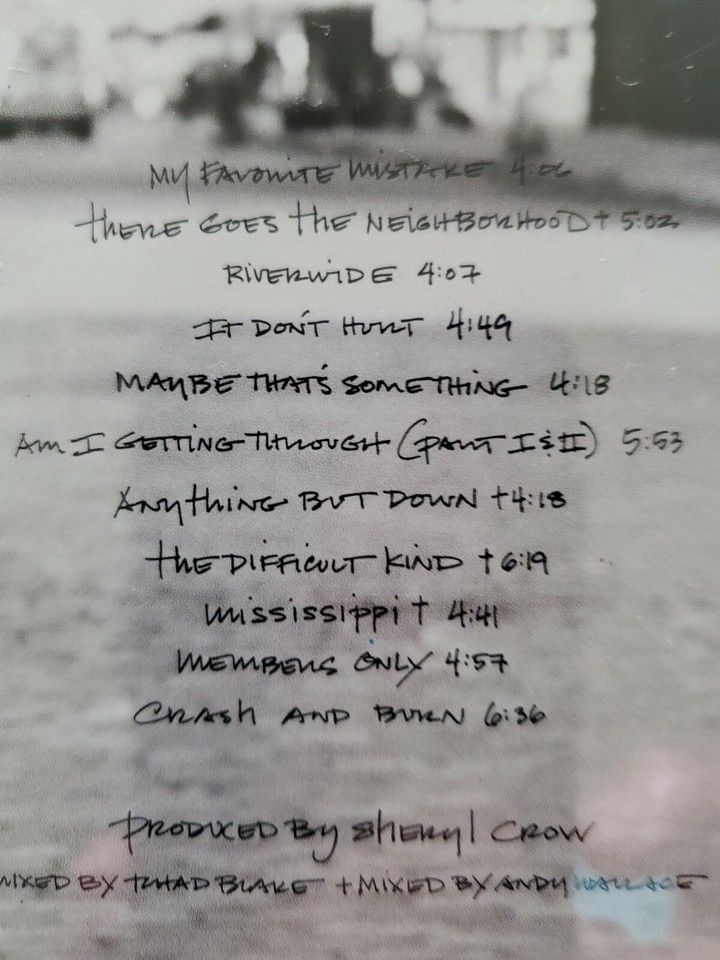 MY FAVORITE MISTAKE 4:06
THERE GOES THE NEIGHBORHOOD † 5:02
RIVERWIDE 4:07
IT DON'T HURT 4:49
MAYBE THAT'S SOMETHING 4:18
AM I GETTING THROUGH (PART I & II) 5:53
ANYTHING BUT DOWN † 4:18
THE DIFFICULT KIND † 6:19
MISSISSIPPI † 4:41
MEMBERS ONLY 4:57
CRASH AND BURN 6:36
PRODUCED BY SHERYL CROW
MIXED BY TCHAD BLAKE † MIXED BY ANDY WALLACE